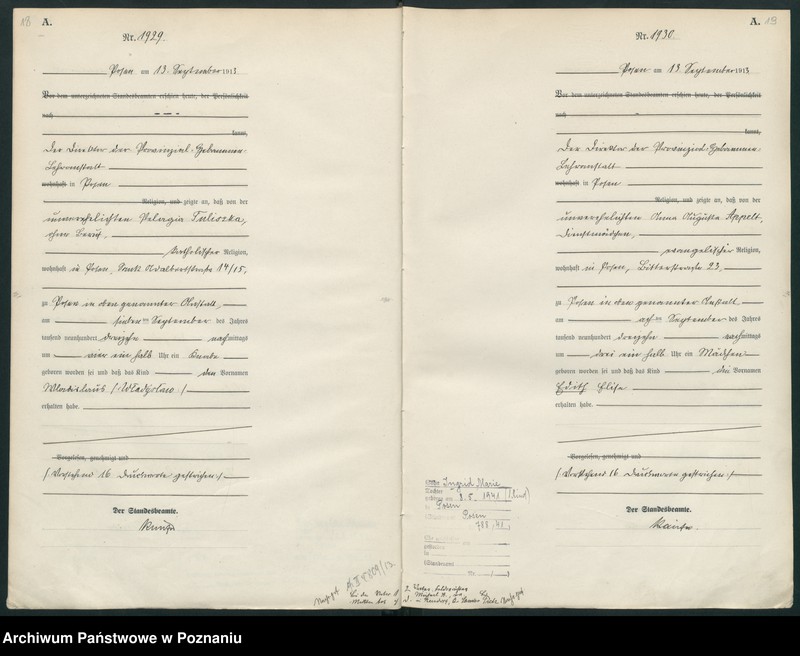 18
A.
Nr. 1929.
Posen am 13. September 1913
Vor dem unterzeichneten Standesbeamten erschien heute, der Persönlichkeit
nach
kannt,
Der Direktor der Provinzial-Hebammen-
Lehranstalt
wohnhaft in Posen
Religion, und zeigte an, daß von der
unverehelichten Pelagia
ohne Beruf,
katholischer Religion,
wohnhaft in Posen, Sankt Adalbertstraße 14/15,
zu Posen in der genannten Anstalt,
am sieben ten September des Jahres
tausend neunhundert dreizehn nachmittags
um vier ein halb Uhr ein Knabe
geboren worden sei und daß das Kind den Vornamen
Wladislaus (Władysław)
erhalten habe.
Vorgelesen, genehmigt und
(Vorstehend 16 Druckworte gestrichen)
Der Standesbeamte.
A.
19
Nr. 1930.
Posen am 13 September 1913
Vor dem unterzeichneten Standesbeamten erschien heute, der Persönlichkeit
nach
kannt,
Der Direktor der Provinzial-Hebammen-
Lehranstalt
wohnhaft in Posen
Religion, und zeigte an, daß von der
unverehelichten Anna Augusta Appelt,
Dienstmädchen,
evangelischer Religion,
wohnhaft in Posen, Ritterstraße 23,
zu Posen in der genannten Anstalt
am ach ten September des Jahres
tausend neunhundert dreizehn nachmittags
um drei ein halb Uhr ein Mädchen
geboren worden sei und daß das Kind die Vornamen
Edith Elise
erhalten habe.
Vorgelesen, genehmigt und
(Vorstehend 16 Druckworte gestrichen)
Der Standesbeamte.
Ingrid Marie
8. 5. 1941
Posen
Posen
788/41
Archiwum Państwowe w Poznaniu